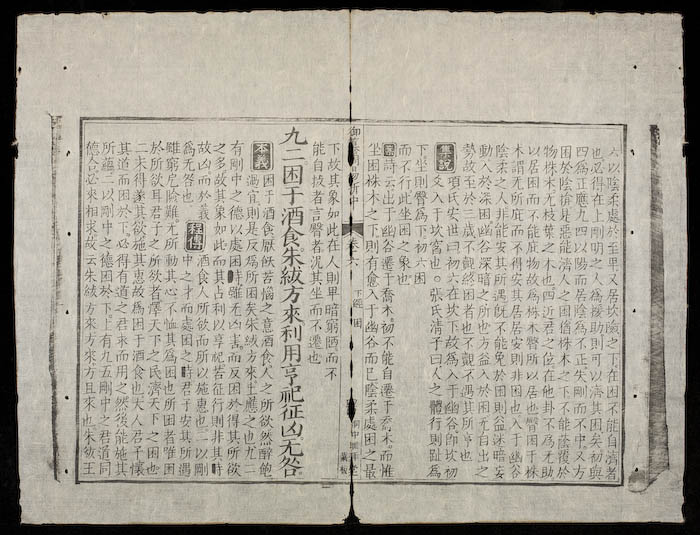 六以陰柔處於至卑又居坎險之下在困不能自濟者
也必得在上剛明之人為援助則可以濟其困矣初與
四為正應九四以陽而居陰為不正失剛而不中又方
困於陰揜是惡能濟人之困猶株木之下不能蔭覆於
物株木无枝葉之木也四近君之位在他卦不為无助
以居困而不能庇物故為株木臀所以居也臀困于株
木謂无所庇而不得安其居居安則非困也入于幽谷
陰柔之人非能安其所遇既不能免於困則益迷暗妄
動入於深困幽谷深暗之所也方益入於困无自出之
勢故至於三歲不覿終困者也不覿不遇其所亨也
集說 項氏安世曰初六在坎下故為入于幽谷即坎初
爻入于坎窞也 張氏清子曰人之體行則趾為
下坐則臀為下初六困
而不行此坐困之象也
案詩云出于幽谷遷于喬木初不能自遷于喬木而惟
坐困株木之下則有愈入于幽谷而已陰柔處困之最
御纂周易折中 卷六 下經 困
下故其象如此在人則卑暗窮陋而不
能自拔者言臀者況其坐而不遷也
九二困于酒食朱紱方來利用亨祀征凶无咎
本義 困于酒食厭飫苦惱之意酒食人之所欲然醉飽
過宜則是反為所困矣朱紱方來上應之也九二
有剛中之德以處困時雖无凶害而反困於得其所欲
之多故其象如此而其占利以享祀若征行則非其時
故凶而於義為无咎也
程傳 酒食人所欲而所以施惠也二以剛
中之才而處困之時君子安其所遇
雖窮厄險難无所動其心不恤其為困也所困者唯困
於所欲耳君子之所欲者澤天下之民濟天下之困也
二未得遂其欲施其惠故為困于酒食也大人君子懷
其道而困於下必得有道之君求而用之然後能施其
所蘊二以剛中之德困於下上有九五剛中之君道同
德合必來相求故云朱紱方來方來方且來也朱紱王